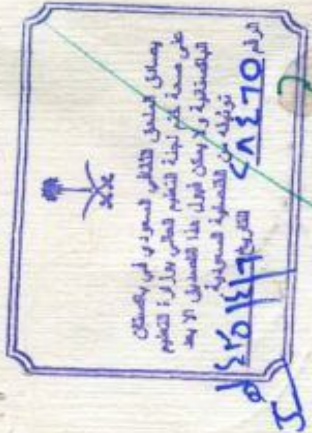 يصادق الملحق الثقافي السعودي في باكستان
على صحة ختم لجنة التعليم العالي بوزارة التعليم
الباكستانية ولا يمكن قبول هذا التصديق الا بعد
توثيقه من القنصلية السعودية
الرقم ٢٨٤٦٥ التاريخ